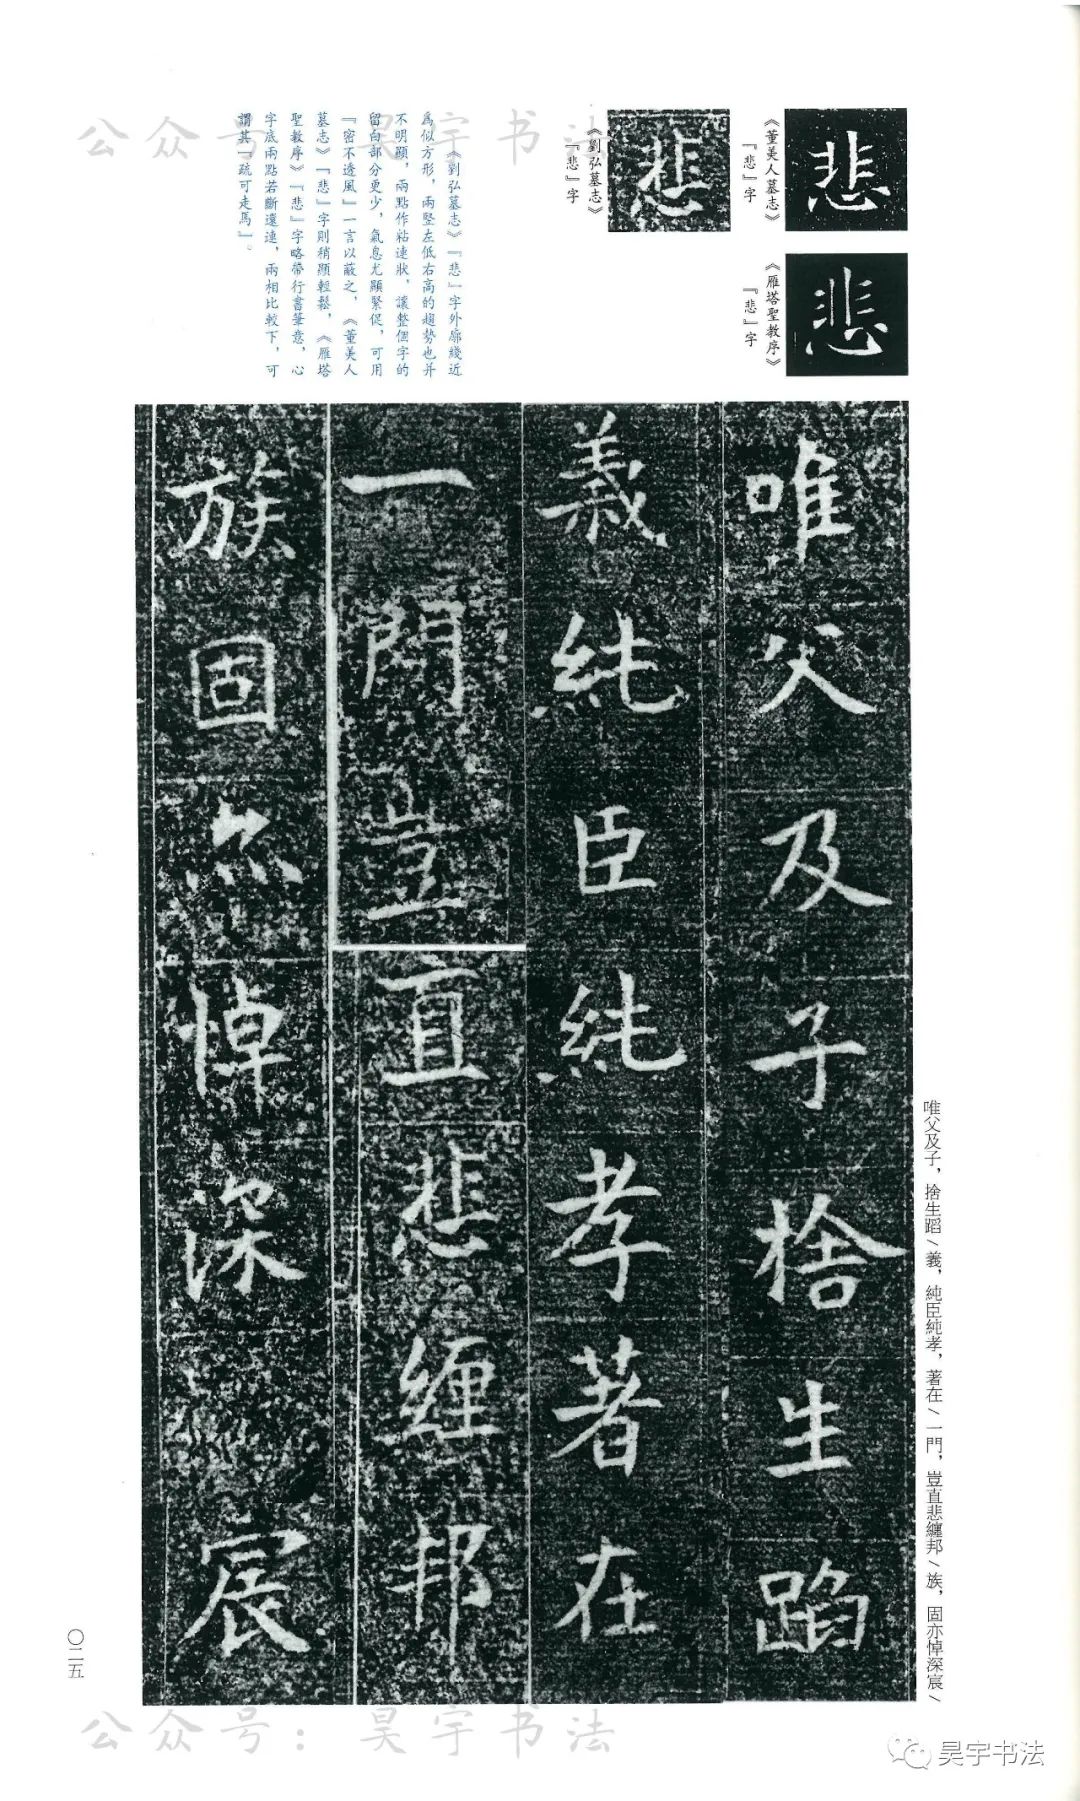 公众号：昊宇书法
《董美人墓志》
『悲』字
悲
《雁塔聖教序》
『悲』字
悲
《劉弘墓志》
『悲』字
悲
《劉弘墓志》『悲』字外廓綫近
爲似方形，兩竪左低右高的趨勢也并
不明顯，兩點作粘連狀，讓整個字的
留白部分更少，氣息尤顯緊促，可用
『密不透風』一言以蔽之，《董美人
墓志》『悲』字則稍顯輕鬆，《雁塔
聖教序》『悲』字略帶行書筆意，心
字底兩點若斷還連，兩相比較下，可
謂其『疏可走馬』。
唯父及子捨生蹈
義純臣純孝著在
一門豈直悲纏邦
族固亦悼深宸
唯父及子，捨生蹈\義，純臣純孝，著在\一門，豈直悲纏邦\族，固亦悼深宸\
〇二五
公众号：昊宇书法
昊宇书法